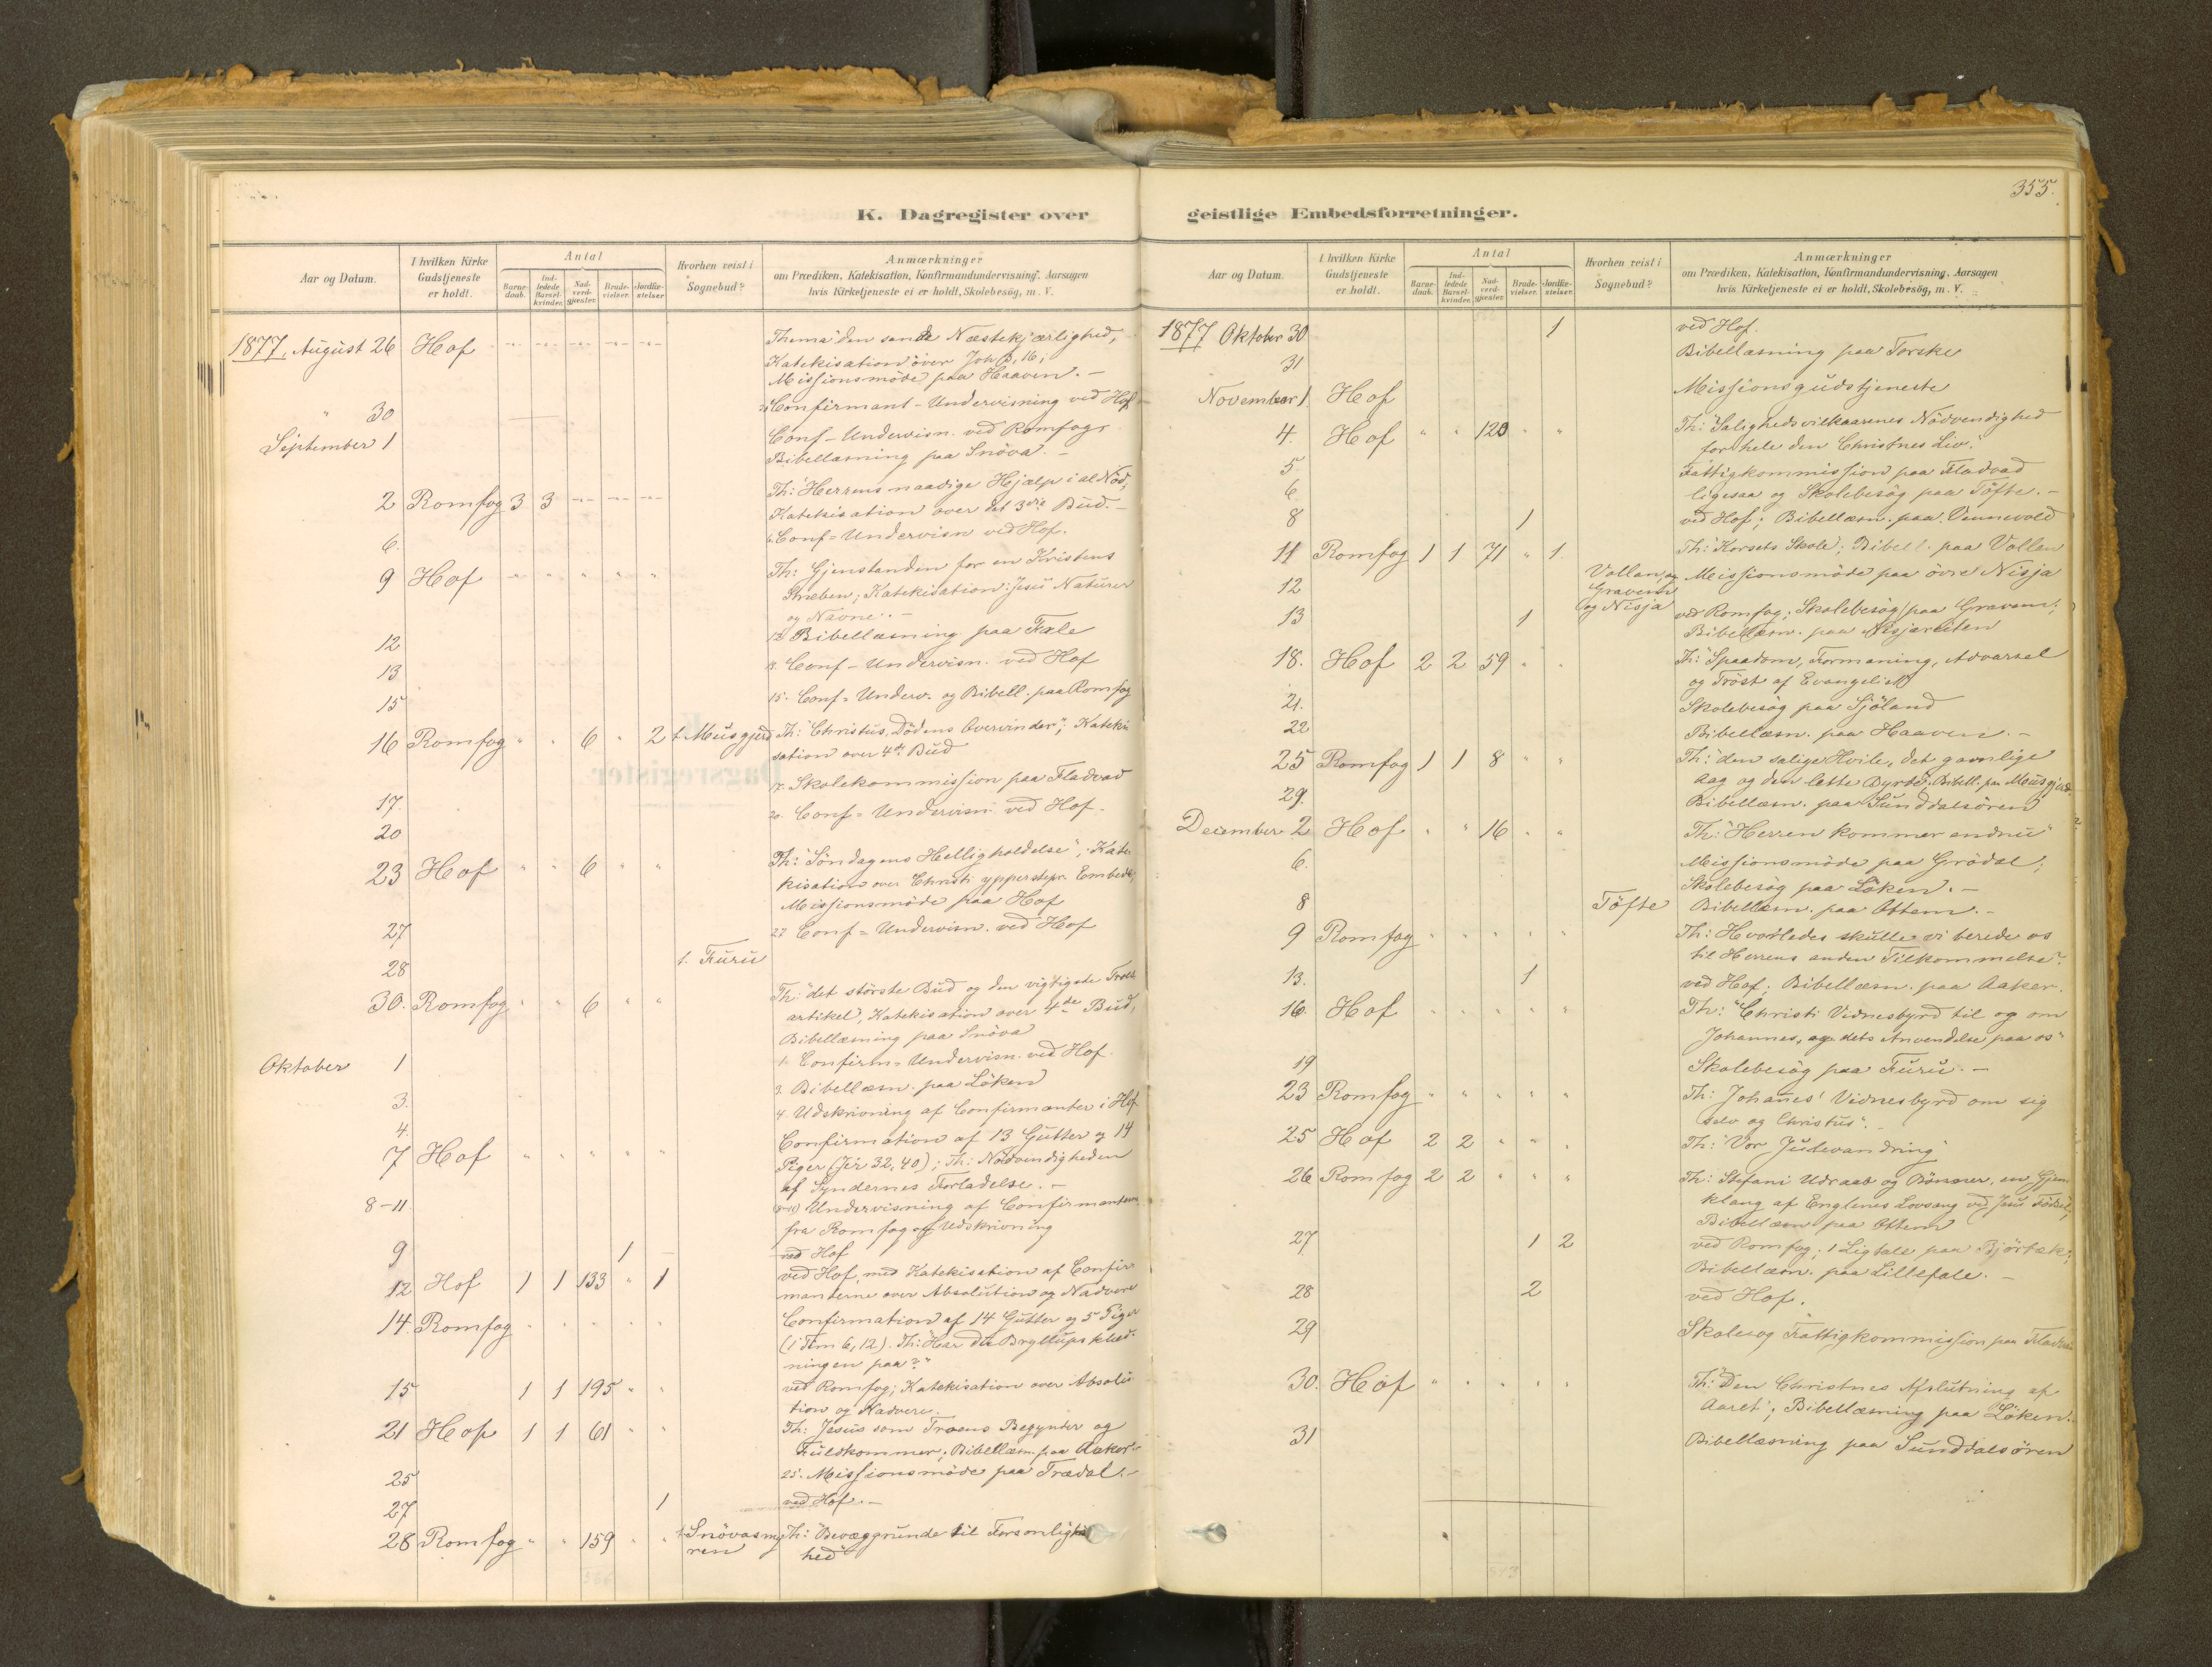 K. Dagregister over
Aar og Datum.
I hvilken Kirke Gudstjeneste er holdt.
Antal
Barnedaab.
Indledede Barselkvinder.
Nadverdgjester.
Brudevielser.
Jordfæstelser
Hvorhen reist i Sognebud?
Anmærkninger
om Prædiken, Katekisation, Konfirmandundervisning, Aarsagen
hvis Kirketjeneste ei er holdt, Skolebesög, m. V.
1877. August 26 Hof Thema "den sande Næstekjærlighed,
Katekisation over Joh 3, 16;
Missionsmöde paa Haaven. -
" 30 Confirmant-Undervisning ved Hof
September 1 Conf-Undervisn. ved Romfog
Bibellæsning paa Snöva. -
2 Romfog 3 3 Th: "Herrens naadige Hjælp i al Nöd;
Katekisation over det 3die Bud. -
6. 6. Conf=Undervisn ved Hof.
9 Hof " " " " Th: Gjenstanden for en Kristens
Stræben; Katekisation: Jesu Naturer
og Navne. -
12 12 Bibellæsning paa Fale
13 13. Conf-Undervisn. ved Hof
15 15. Conf=Underv. og Bibell. paa Romfog
16 Romfog " " 6 " 2 t. Musgjerd Th: "Christus, Dödens Overvinder"; Kateki
sation over 4de Bud
17. 17. Skolekommission paa Fladvad
20 20. Conf=Undervisn. ved Hof.
23 Hof " " 6 " " Th: "Söndagens Helligholdelse"; Kate
kisation over Christi ypperstepr. Embede;
Missionsmöde paa Hof
27 27 Conf=Undervisn. ved Hof
28 t. Furu
30. Romfog " " 6 " " Th: "det störste Bud og den vigtigste Troes
artikel, Katekisation over 4de Bud,
Bibellæsning paa Snöva
Oktober 1 1. Confirm=Undervisn. ved Hof.
3. 3. Bibellæsn. paa Löken
4. 4. Udskrivning af Confirmanter i Hof
7 Hof " " " " " Confirmation af 13 Gutter og 14
Piger (Jer 32, 40); Th: Nödvendigheden
af Syndernes Forladelse. -
8-11 8-11) Undervisning af Confirmanterne
fra Romfog og Udskrivning
9 1 ved Hof
12 Hof 1 1 133 " 1 ved Hof, med Katekisation af Confir
manterne over Absolution og Nadvere
14. Romfog Confirmation af 14 Gutter og 5 Piger
(1 Tim 6, 12). Th: "Har du Bryllupsklæd-
ningen paa?"
15 1 1 195 " " ved Romfog; Katekisation over Absolu
tion og Nadvere.
21 Hof 1 1 61 " " Th: Jesus som Troens Begynder og
Fuldkommer; Bibellæsn. paa Aaker -
25 25. Missionsmöde paa Trædal. -
27 1 ved Hof. -
28 Romfog " " 159 " " t. Snövasmo
ren
Th: "Bevæggrunde til Forsonlig
hed"
355.
geistlige Embedsforretninger.
Aar og Datum.
I hvilken Kirke Gudstjeneste er holdt.
Antal
Barnedaab.
Indledede Barselkvinder.
Nadverdgjester.
Brudevielser.
Jordfæstelser.
Hvorhen reist i Sognebud?
Anmærkninger
om Prædiken, Katekisation, Konfirmandundervisning, Aarsagen
hvis Kirketjeneste ei er holdt, Skolebesög, m. V.
1877 Oktober 30 1 ved Hof.
31 Bibellæsning paa Torske
November 1 Hof Missionsgudstjeneste
4. Hof " " 120 " " Th: "Salighedsvilkaarenes Nödvendighed
for hele den Christnes Liv."
5. Fattigkommission paa Fladvad
6. ligesaa og Skolebesög paa Töfte. -
8 1 ved Hof; Bibellæsn. paa Vennevold
11 Romfog 1 1 71 " 1. Th: "Korsets Skole; Bibell. paa Vollan
12 Vollan, og
Gravem
og Nisja
Missionsmöde paa övre Nisja
13 1 ved Romfog; Skolebesög paa Gravem;
Bibellæsn. paa Nisjareiten
18. Hof 2 2 59 " " Th: "Spaadom, Formaning, Advarsel
og Tröst af Evangeliet"
21. Skolebesög paa Sjöland
22 Bibellæsn. paa Haaven. -
25 Romfog 1 1 8 " " Th: "den salige Hvile, det gavnlige
Aag og den lette Byrde"; Bibell. paa Musgjerd.
29. Bibellæsn. paa Sunddalsören
December 2 Hof " " 16 " " Th: "Herren kommer endnu"
6. Missionsmöde paa Grödal;
Skolebesög paa Löken. -
8 Töfte Bibellæsn. paa Ottem. -
9 Romfog " " " " " Th: Hvorledes skulle vi berede os
til Herrens anden Tilkommelse".
13. 1 ved Hof; Bibellæsn. paa Aaker.
16. Hof " " " " " Th: "Christi Vidnesbyrd til og om
Johannes, og dets Anvendelse paa os"
19 Skolebesög paa Furu. -
23 Romfog " " " " " Th: Johanes' Vidnesbyrd om sig
selv og Christus". -
25 Hof 2 2 " " " Th: "Vor Julevandring"
26 Romfog 2 2 " " " Th: Stefani Udraab og Bönner, en Gjen
klang af Englenes Lovsang ved Jesu Födsel;
Bibellæsn paa Ottem
27 1 2 ved Romfog; 1 Ligtale paa Björbæk;
Bibellæsn. paa Lillefale. -
28 2 ved Hof.
29 Skole og Fattigkommission paa Fladvad
30. Hof " " " " " Th: "Den Christnes Afslutning af
Aaret"; Bibellæsning paa Löken.
31 Bibellæsning paa Sunddalsören